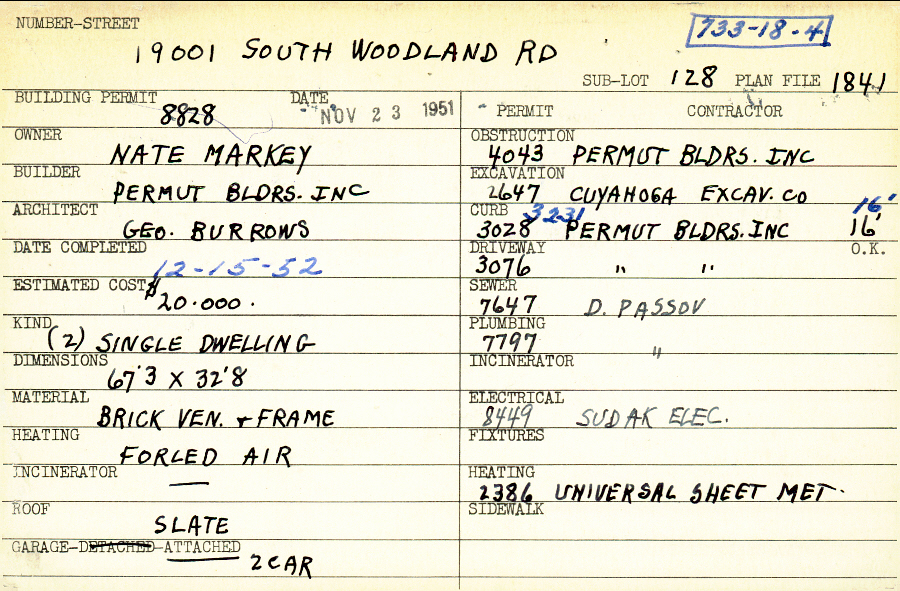 NUMBER-STREET
733-18-4
19001 SOUTH WOODLAND RD
SUB-LOT 128 PLAN FILE 1841
BUILDING PERMIT 8828 DATE NOV 23 1951
OWNER NATE MARKEY
BUILDER PERMUT BLDRS. INC
ARCHITECT GEO. BURROWS
DATE COMPLETED 12-15-52
ESTIMATED COST $20.000.
KIND (2) SINGLE DWELLING
DIMENSIONS 67'3 X 32'8
MATERIAL BRICK VEN. + FRAME
HEATING FORLED AIR
INCINERATOR —
ROOF SLATE
GARAGE-DETACHED-ATTACHED 2 CAR
PERMIT CONTRACTOR
OBSTRUCTION 4043 PERMUT BLDRS. INC
EXCAVATION 2647 CUYAHOGA EXCAV. CO
CURB 3231 16'
3028 PERMUT BLDRS. INC 16'
DRIVEWAY 3076 " " O.K.
SEWER 7647 D. PASSOV
PLUMBING 7797 "
INCINERATOR
ELECTRICAL 8449 SUDAK ELEC.
FIXTURES
HEATING 2386 UNIVERSAL SHEET MET.
SIDEWALK